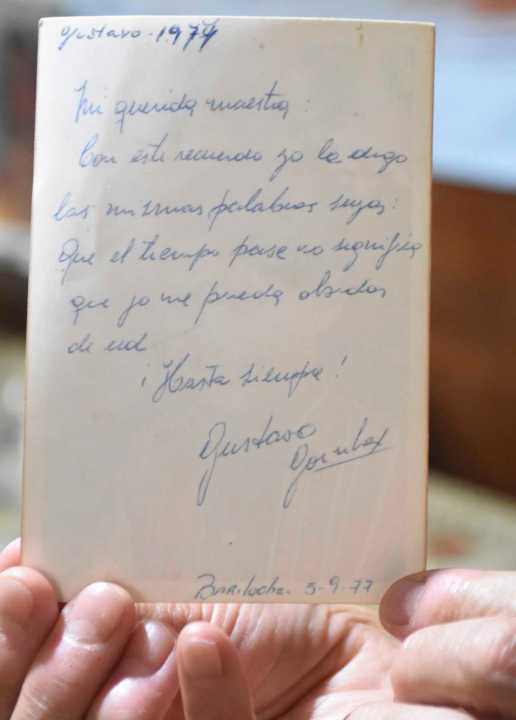 Gustavo - 1977
Mi querida maestra:
Con este recuerdo yo la digo
las mismas palabras suyas:
Que el tiempo pase no significa
que yo me pueda olvidar
de ud
¡Hasta siempre!
Gustavo
Bariloche. 5-9-77